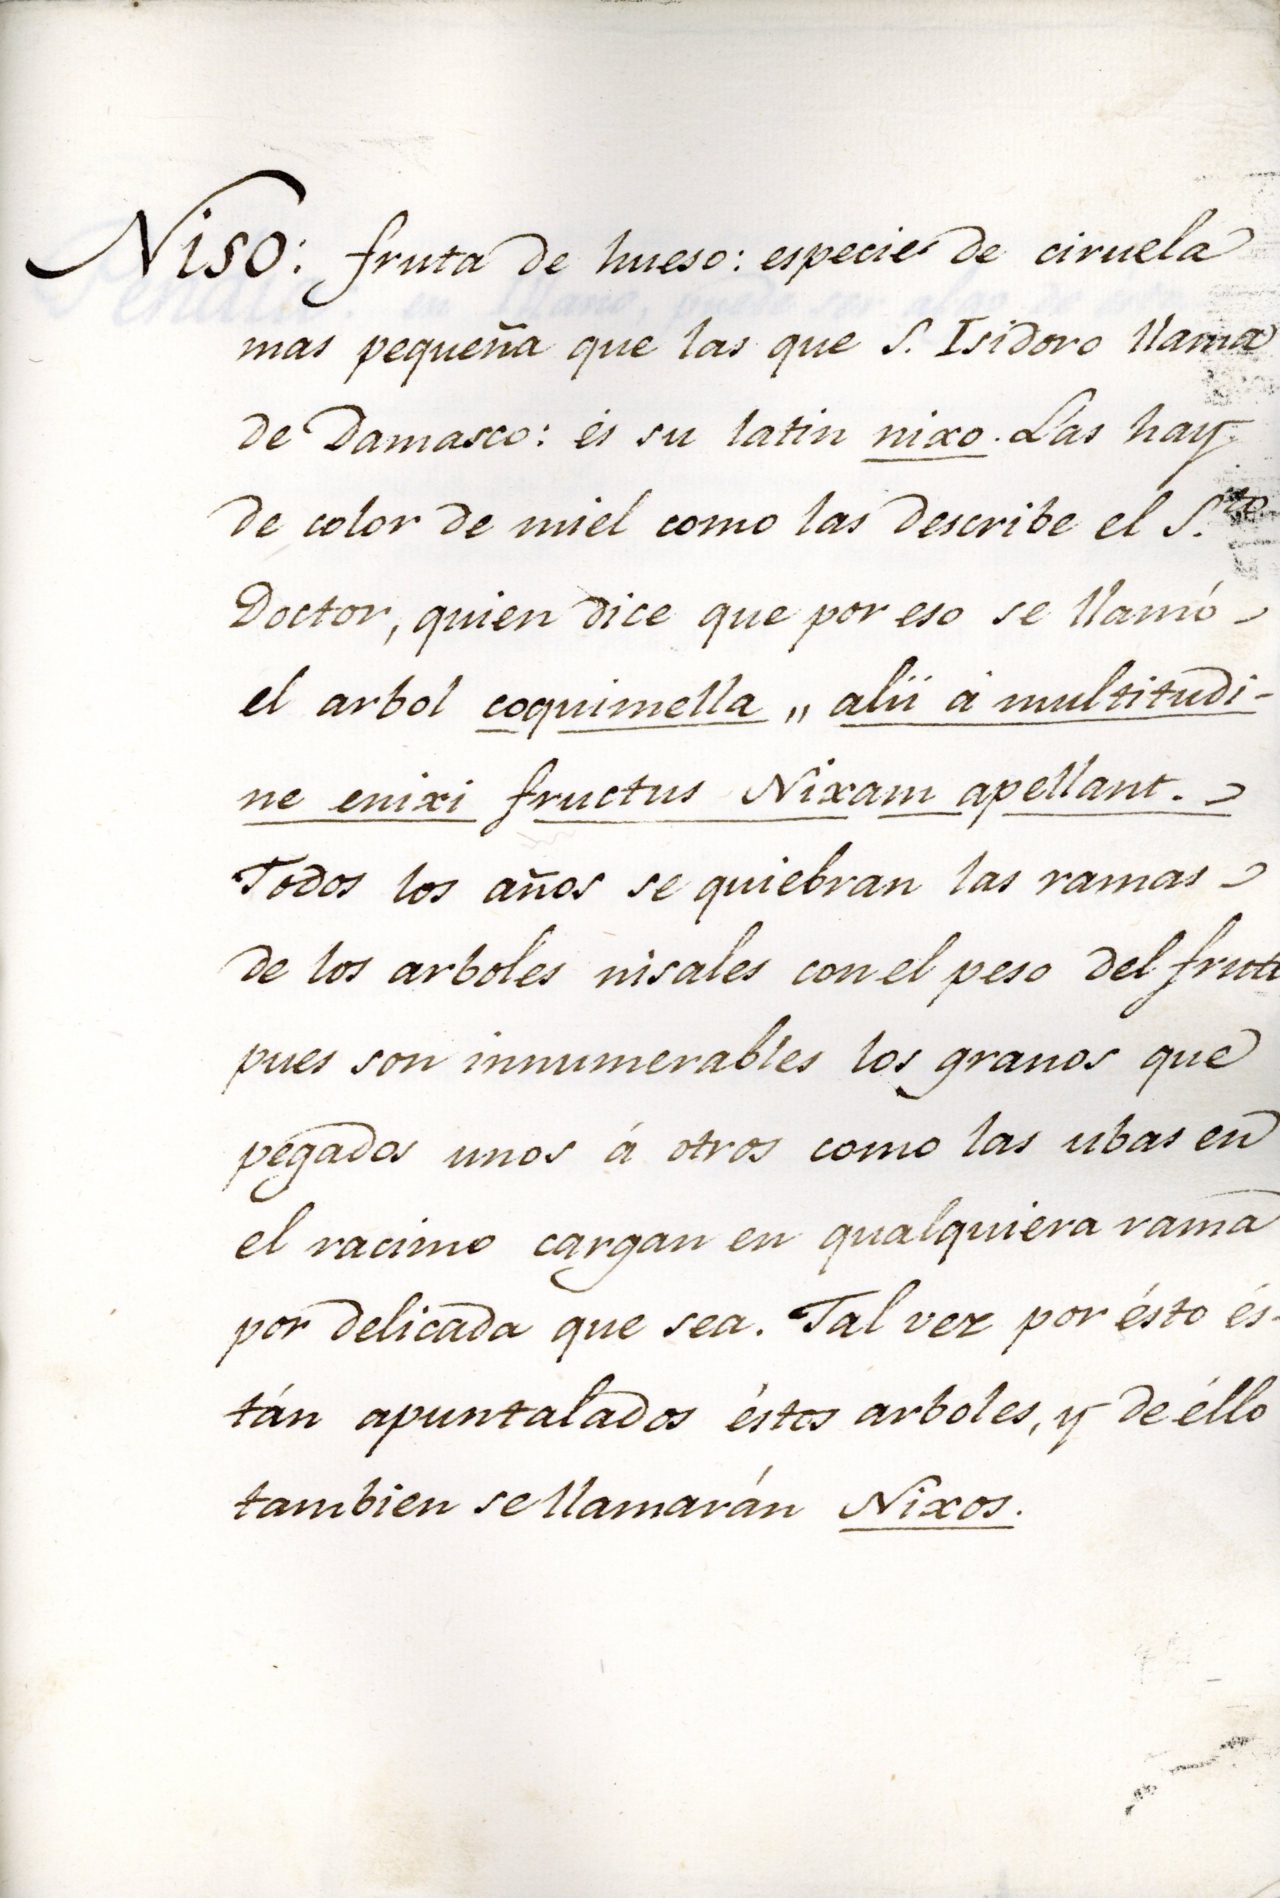 Niso: fruta de hueso: especie de ciruela
mas pequeña que las que S. Isidoro llama
de Damasco: és su latin nixo. Las hay
de color de miel como las describe el S.to
Doctor, quien dice que por eso se llamó
el arbol coquimella „ alii á multitudi-
ne enixi fructus Nixam apellant.
Todos los años se quiebran las ramas
de los arboles nisales con el peso del
pues son innumerables los granos que
pegados unos á otros como las ubas en
el racimo cargan en qualquiera rama
por delicada que sea. Tal vez por ésto és-
tán apuntalados éstos arboles, y de éllo
tambien se llamarán Nixos.